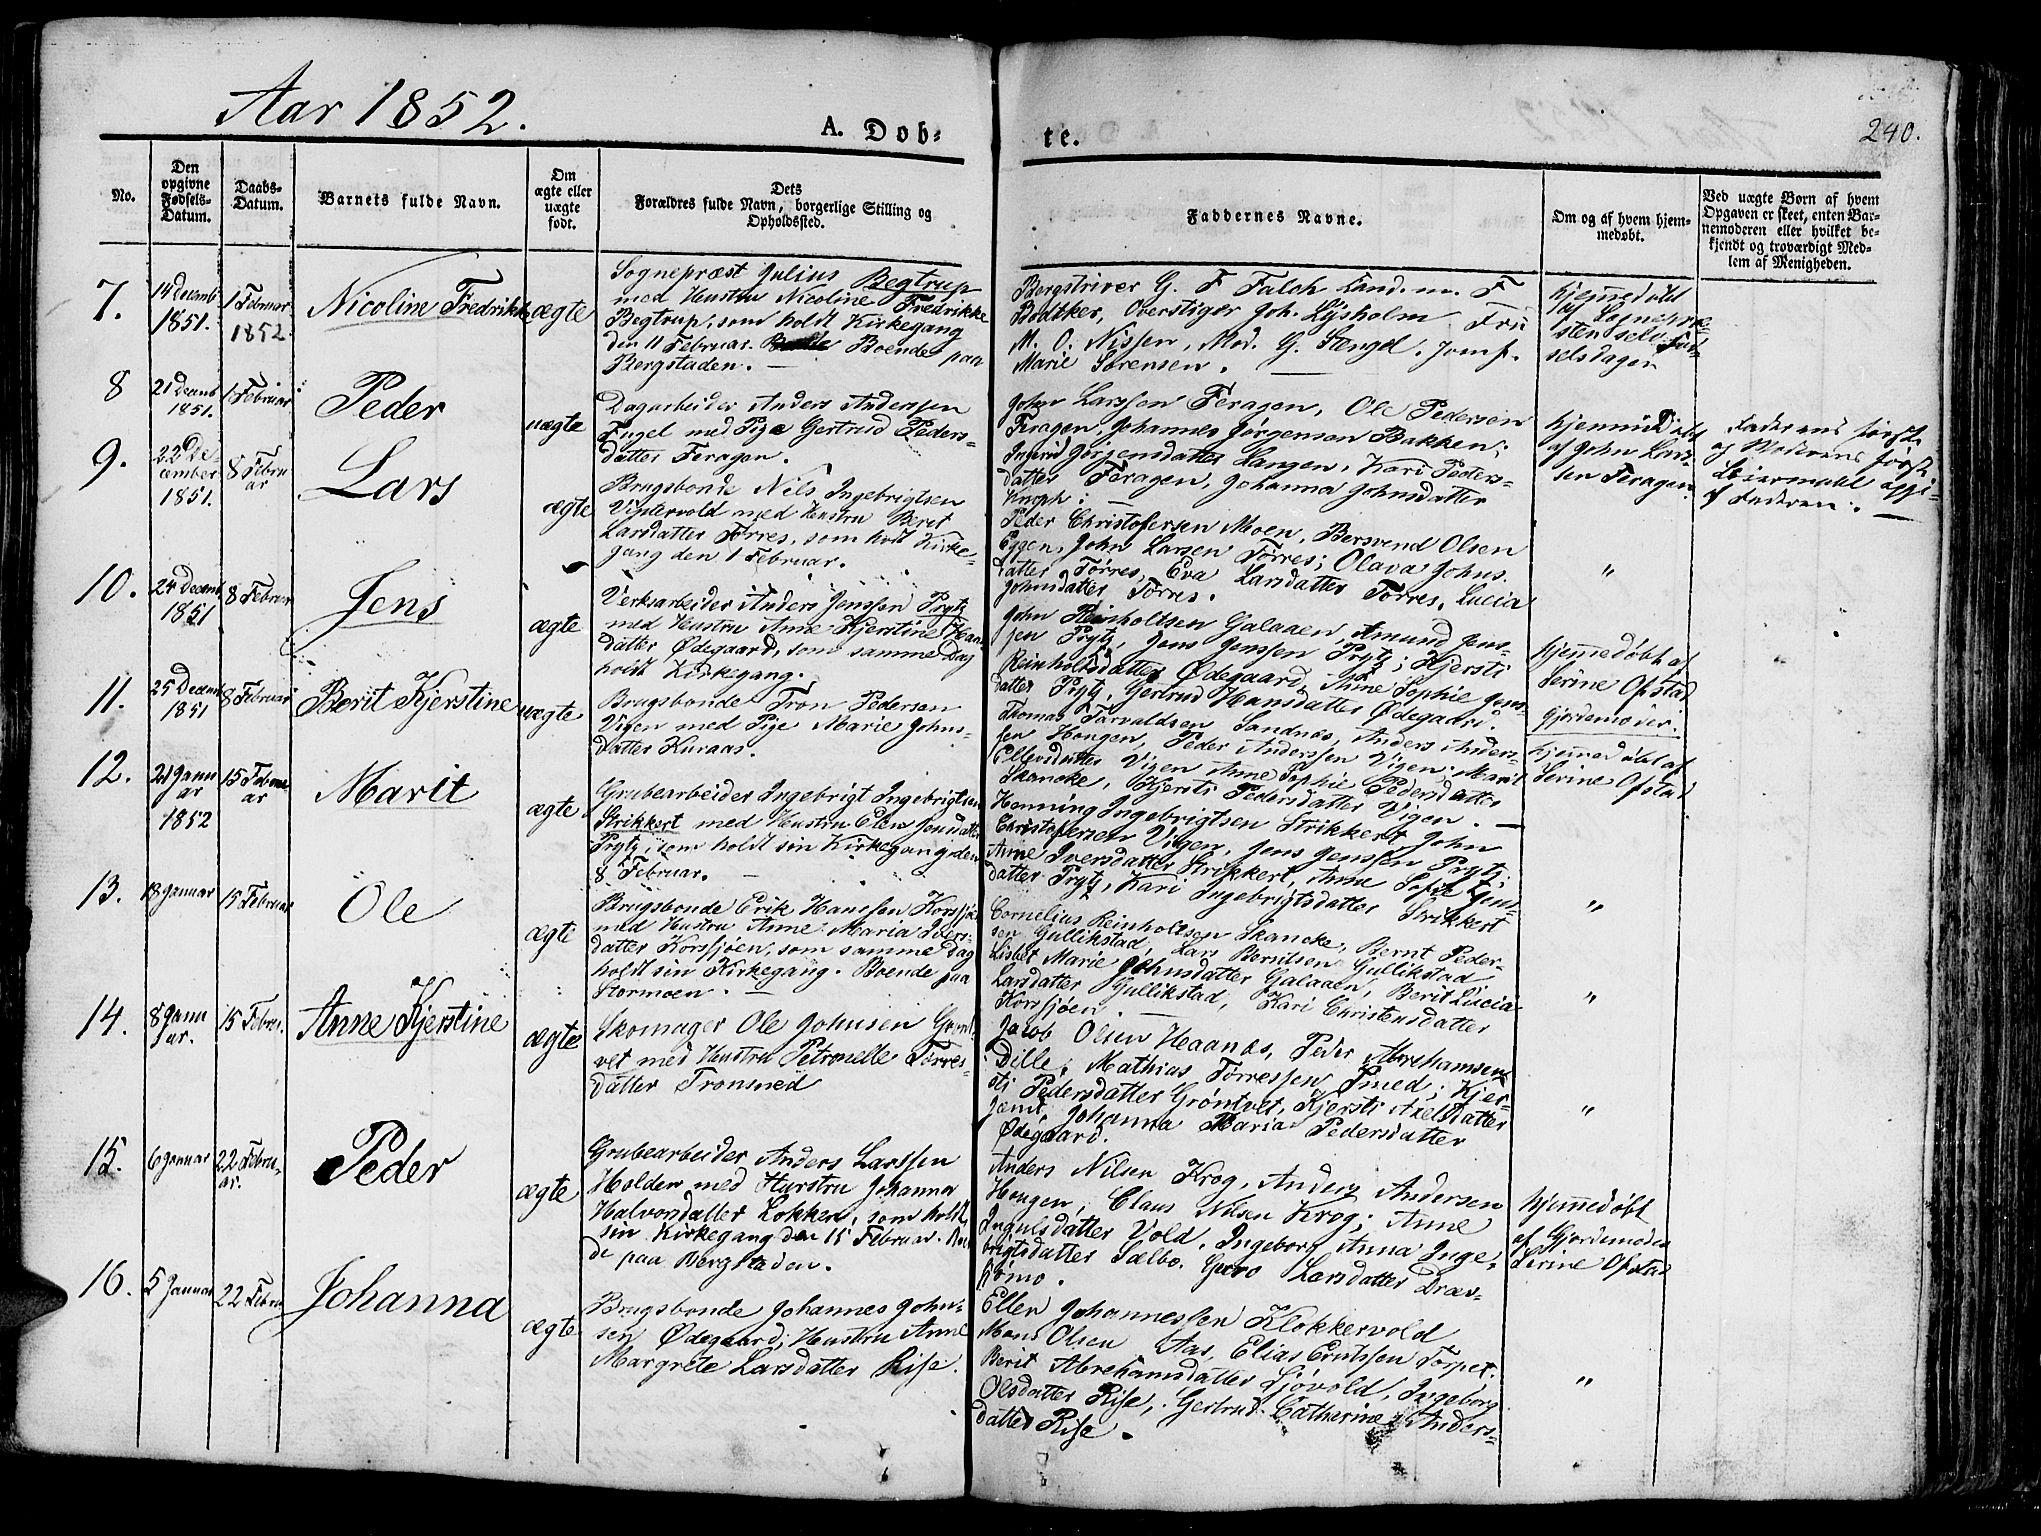 Aar 1852.
A. Døb-
te.
240.
No.
Den
opgivne
Fødsels-
Datum.
Daabs-
Datum.
Barnets fulde Navn.
Om
ægte eller
uægte
født.
Dets
Forældres fulde Navn, borgerlige Stilling og
Opholdssted.
Faddernes Navne.
Om og af hvem hjem-
medøbt.
Ved uægte Børn af hvem
Opgaven er skeet, enten Bar-
nemoderen eller hvilket be-
kjendt og troværdigt Med-
lem af Menigheden.
7.
14 Decemb
1851.
1 Februar
1852
Nicoline Fredrikke
ægte
Sognepræst Julius Begtrup
med Hustru Nicoline Fredrikke
Begtrup, som holdt Kirkegang
den 11 Februar. Boende paa
Bergstaden. —
Bergskriver G. F. Falch Cand. m. F
Bødtker, Overstiger Joh. Lysholm Fru
M. O. Nissen, Mad. G. Stengel. Jomf.
Marie Sørensen. —
Hjemmedøbt
af Sognepræ-
sten selv Fød-
selsdagen
8
21 Decemb
1851.
1 Februar
Peder
uægte
Dagarbeider Anders Anderssen
Fugel med Pige Gertrud Peders-
datter Feragen.
John Larssen Feragen, Ole Pedersen
Feragen, Johannes Jørgensen Bakken;
Jørgensdatter Langen, Kari Peders-
datter Feragen, Johanna Johnsdatter
Knoph: —
Hjemmedøbt
af John Lars-
sen Feragen.
Faderens første
og Moderens første
Leiermaal opgi-
af Faderen. —
9.
22 De-
cember
1851.
8 Febru
ar
Lars
ægte
Brugsbonde Nils Ingebrigtsen
Vintervold med Hustru Berit
Larsdatter Tørres, som holdt Kirke-
gang den 1 Februar.
Peder Christofersen Moen, Bersvend Olsen
Eggen, John Larsen Tørres; Olava Johns.
datter Tørres, Eva Larsdatter Tørres, Lucia
Johnsdatter Tørres.
"
10.
24 Decemb
1851
8 Februar
Jens
ægte
Verksarbeider Anders Jenssen Prytz
med Hustru Anne Kjerstine Hans
datter Ødegaard, som samme Dag
holdt Kirkegang.
John Reinholtsen Galaaen, Amund Jens-
sen Prytz, Jens Jenssen Prytz; Kjersti
Reinholdsdatter Ødegaard, Anne Sophie Jens-
datter Prytz, Gertrud Hansdatter Ødegaard.
Hjemmedøbt af
Serine Ofstad
Gjordemoder.
11.
25 Decemb
1851
8 Februar
Berit Kjerstine
uægte
Brugsbonde Tron Pedersen
Vigen med Pige Marie Johns-
datter Kuraas.
Thomas Tarvaldsen Sandnæs, Anders Anders-
sen Hougen, Peder Anderssen Vigen; Marit
Ellevsdatter Vigen Anne Sophie Pedersdatter
Skancke, Kjersti Pedersdatter Vigen. —
Hjemmedøbt af
Serine Ofstad
12.
21 Janu
ar
1852
15 Febru
ar
Marit
ægte
Grubearbeider Ingebrigt Ingebrigtsen
Strikkert med Hustru Elen Jensdatter
Prytz, som holdt sin Kirkegang den
8 Februar. —
Henning Ingebrigtsen Strikkert John
Christofersen Vigen, Jens Jenssen Prytz;
Anne Iversdatter Strikkert, Anne Sofie Jens-
datter Prytz, Kari Ingebrigtsdatter Strikkert
"
13.
18 Januar
15 Februar
Ole
ægte
Brugsbonde Erik Hanssen Korssjøen
med Hustru Anne Maria Iver-
datter Korssjøen, som samme Dag
holdt sin Kirkegang. Boende paa
Stormoen. —
Cornelius Reinholtsen Skancke, Bernt Peder-
sen Gullikstad, Lars Berntsen Gullikstad
Lisbet Marie Johnsdatter Galaaen, Berit Lucia
Larsdatter Gullikstad, Kari Christensdatter
Korssjøen. —
"
14.
8 Janu
ar.
15 Febru.
Anne Kjerstine
ægte
Skomager Ole Johnsen Grønt-
vet med Hustru Petronelle Tørres-
datter Tronsmed
Jacob Olsen Haanæs, Peder Abrahamsen
Dille, Mathias Tørressen Smed; Kjer-
sti Pedersdatter Grøntvet, Kjersti Axelsdatter
Jamt, Johanna Maria Pedersdatter
Ødegaard.
"
15.
6 Januar
22 Febru-
ar.
Peder
ægte
Grubearbeider Anders Larssen
Holden med Hustru Johanna
Halvorsdatter Løkken, som holdt
sin Kirkegang den 15 Februar. Boen
de paa Bergstaden.
Anders Nilsen Krog, Anders Andersen
Hougen, Claus Nilsen Krog; Anne
Ingulsdatter Vold, Ingeborg Anna Inge-
brigtsdatter Sælbo, Guro Larsdatter Drav-
kømo.
Hjemmedøbt
af Gjordemoder
Serine Ofstad
16.
5 Januar
22 Febru
Johanna
ægte
Brugsbonde Johannes John-
sen Ødegaard; Hustru Anne
Margrete Larsdatter Rise.
Ellen Johannessen Klokkervold
Mons Olsen Aas, Elias Erntssen Torpet.
Berit Abrahamsdatter Sjøvold, Ingeborg
Olsdatter Rise, Gertrud Catherine Anders-
datter Rise.
"